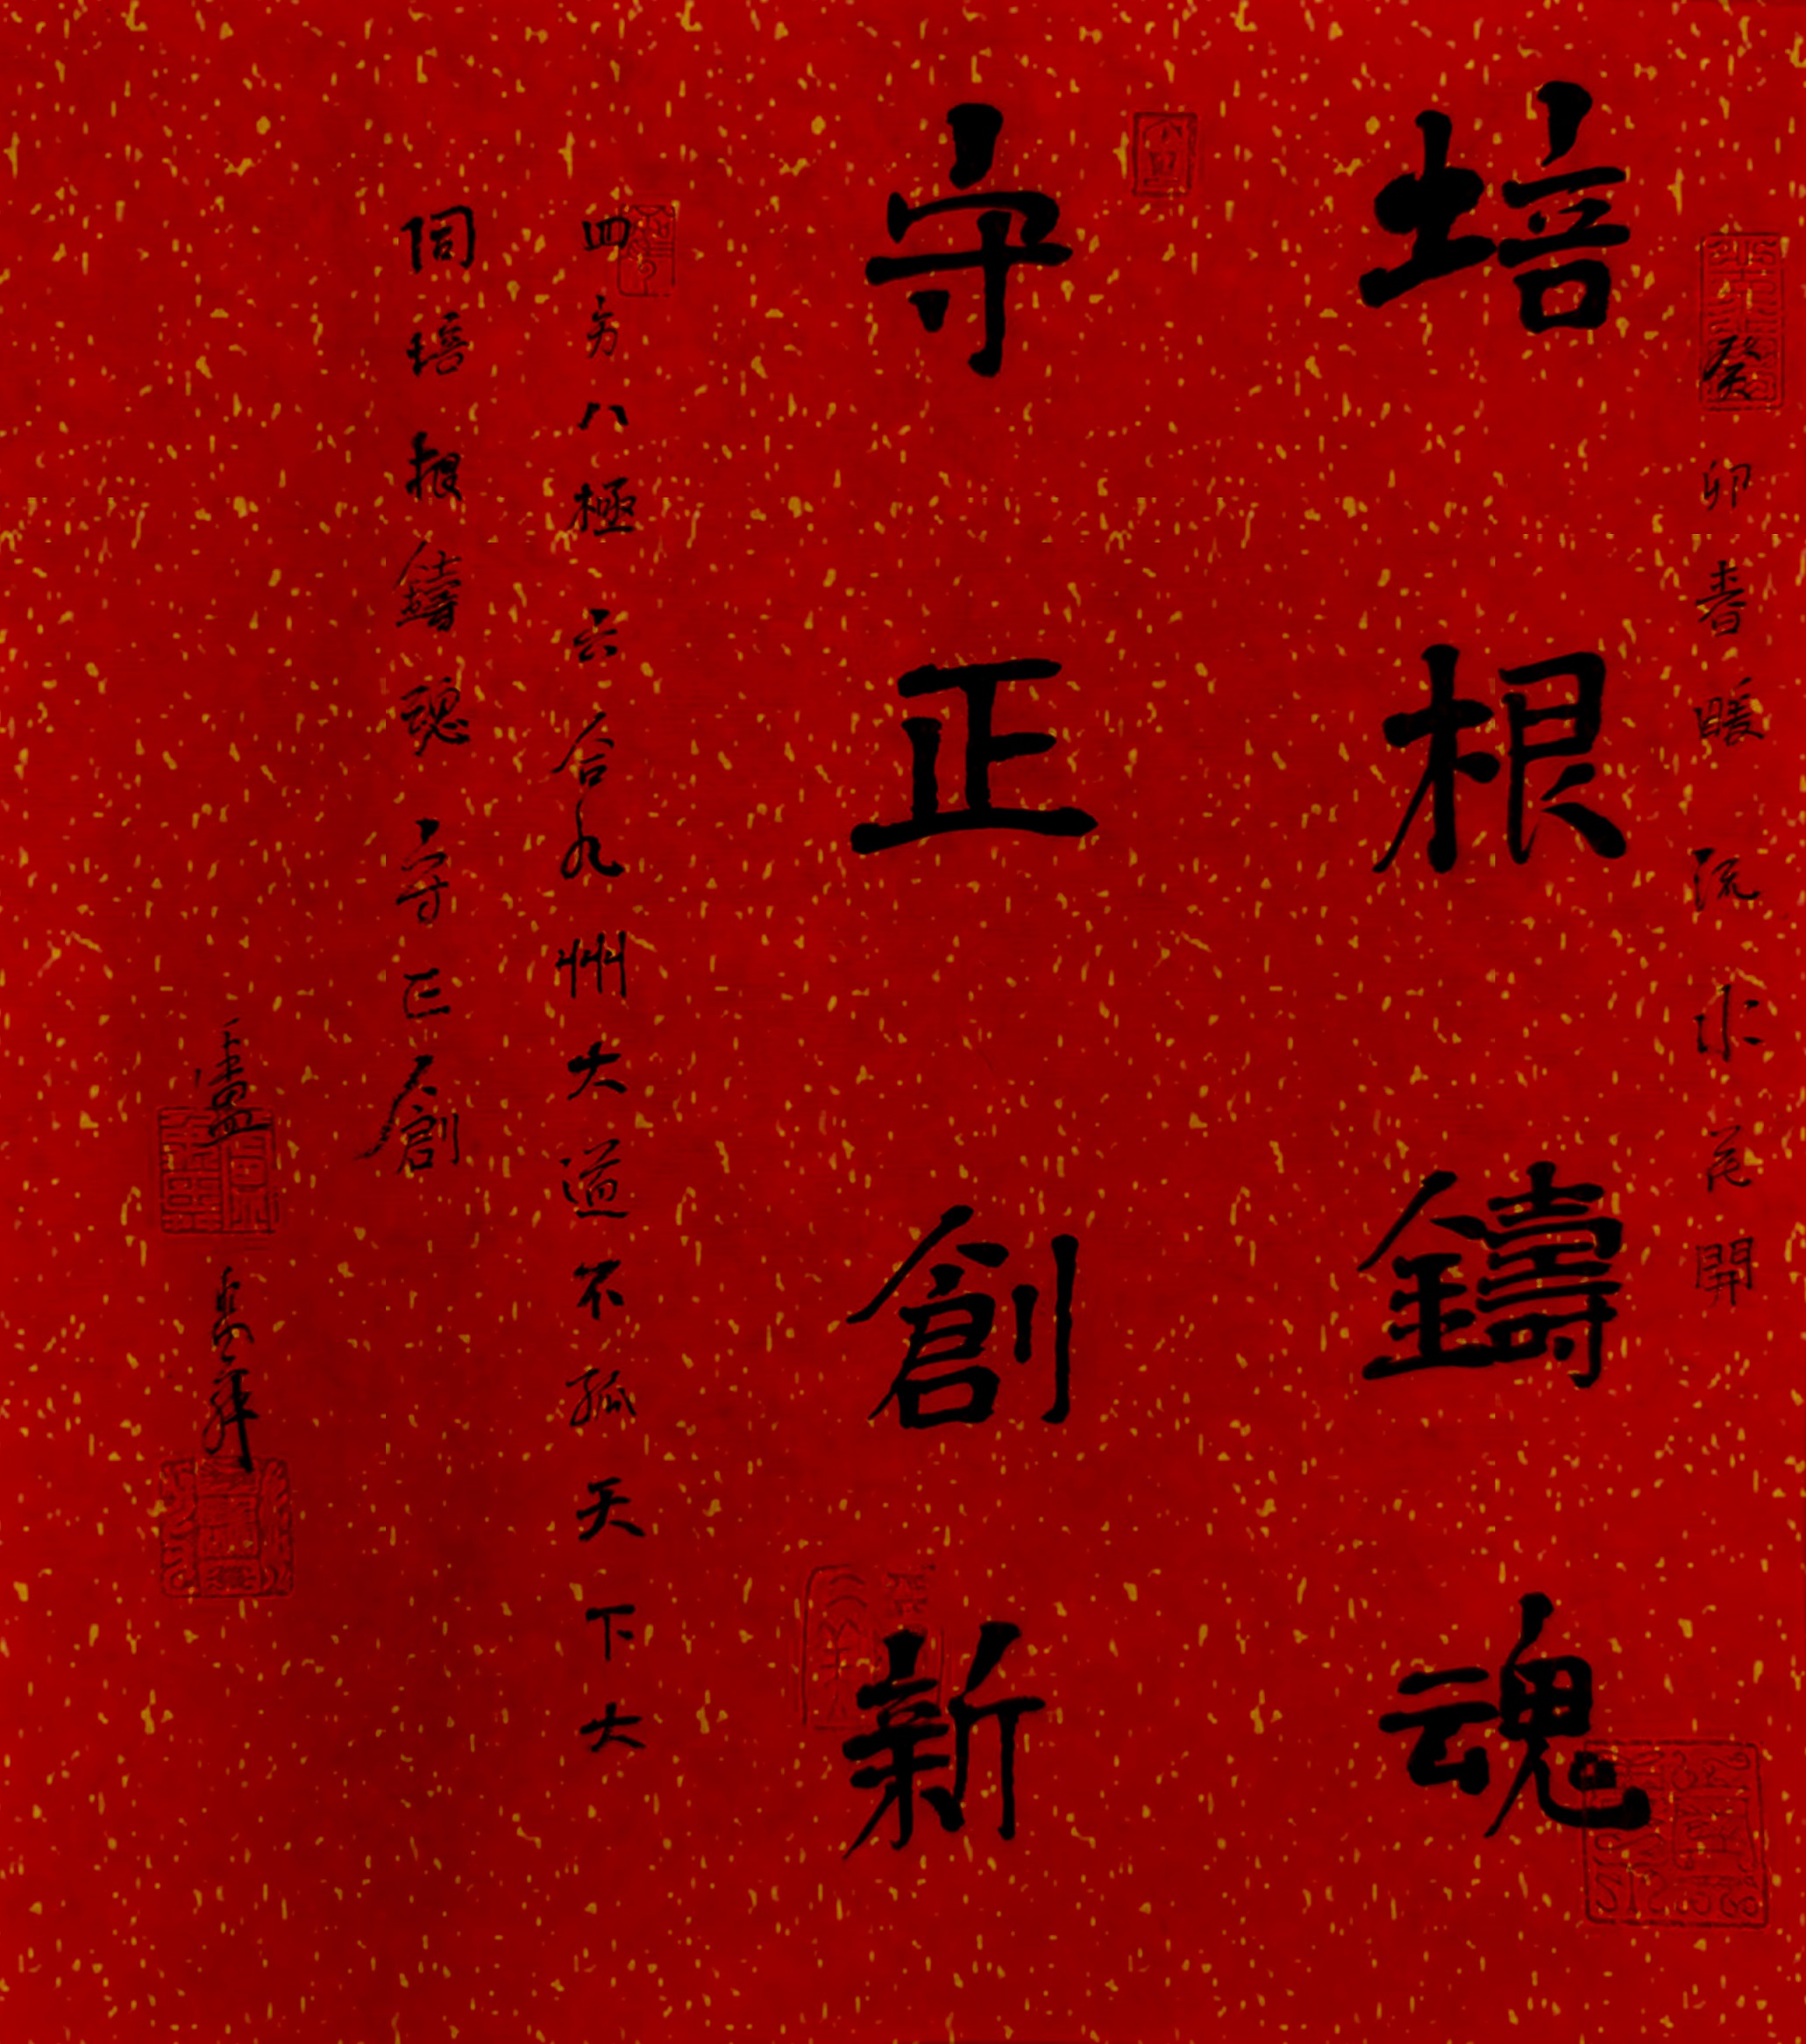 癸卯春暖流水花開
培根鑄魂
守正創新
四方八極六合九州大道不孤天下大
同培根鑄魂守正創
盧禹舜